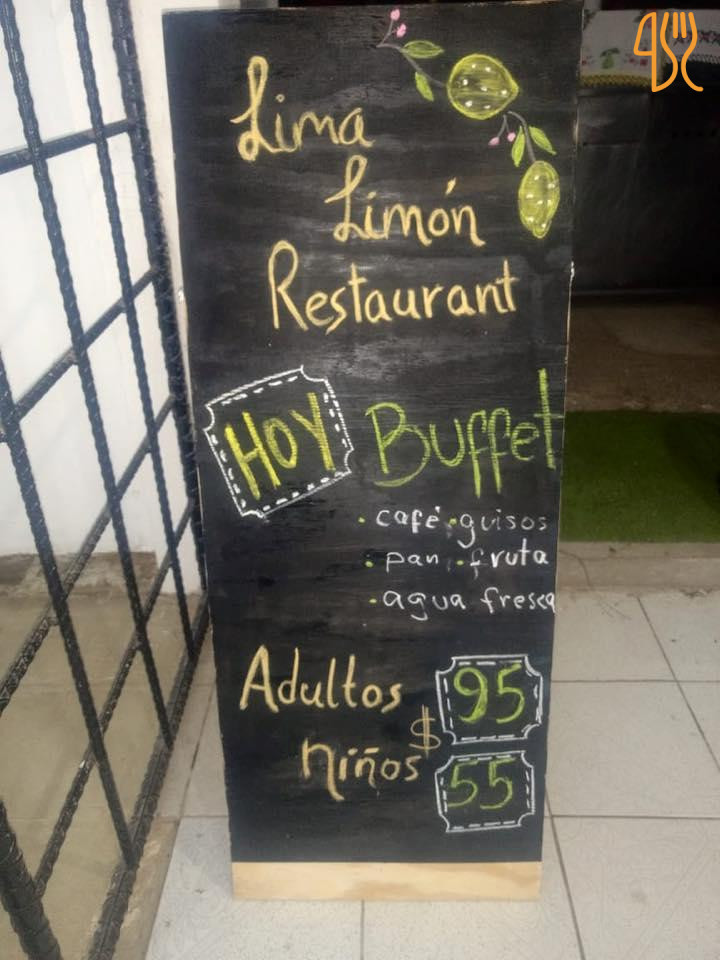 Lima
Limón
Restaurant
HOY Buffet
• café • guisos
• pan • fruta
• agua fresca
Adultos 95
$
Niños 55